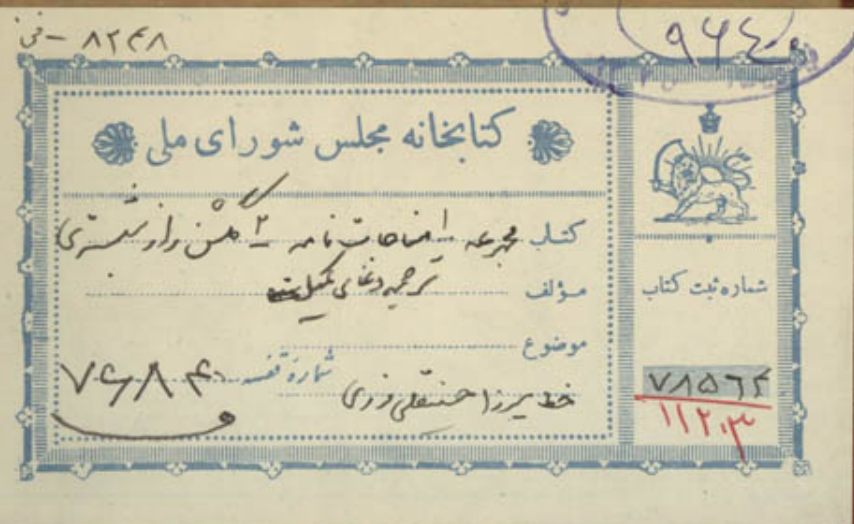 ۸۲۴۸ - فی
۹۶۴۰
کتابخانه مجلس شورای ملی
کتاب مجموعه مناجات نامه ۲ گلشن راز شبستری
مؤلف ترجمه دعای کمیل
موضوع
شماره قفسه ۷۶۸۴۰
خط میرزا حسنقلی
شماره ثبت کتاب
۷۸۵۶۴
۱۱۲۰۳